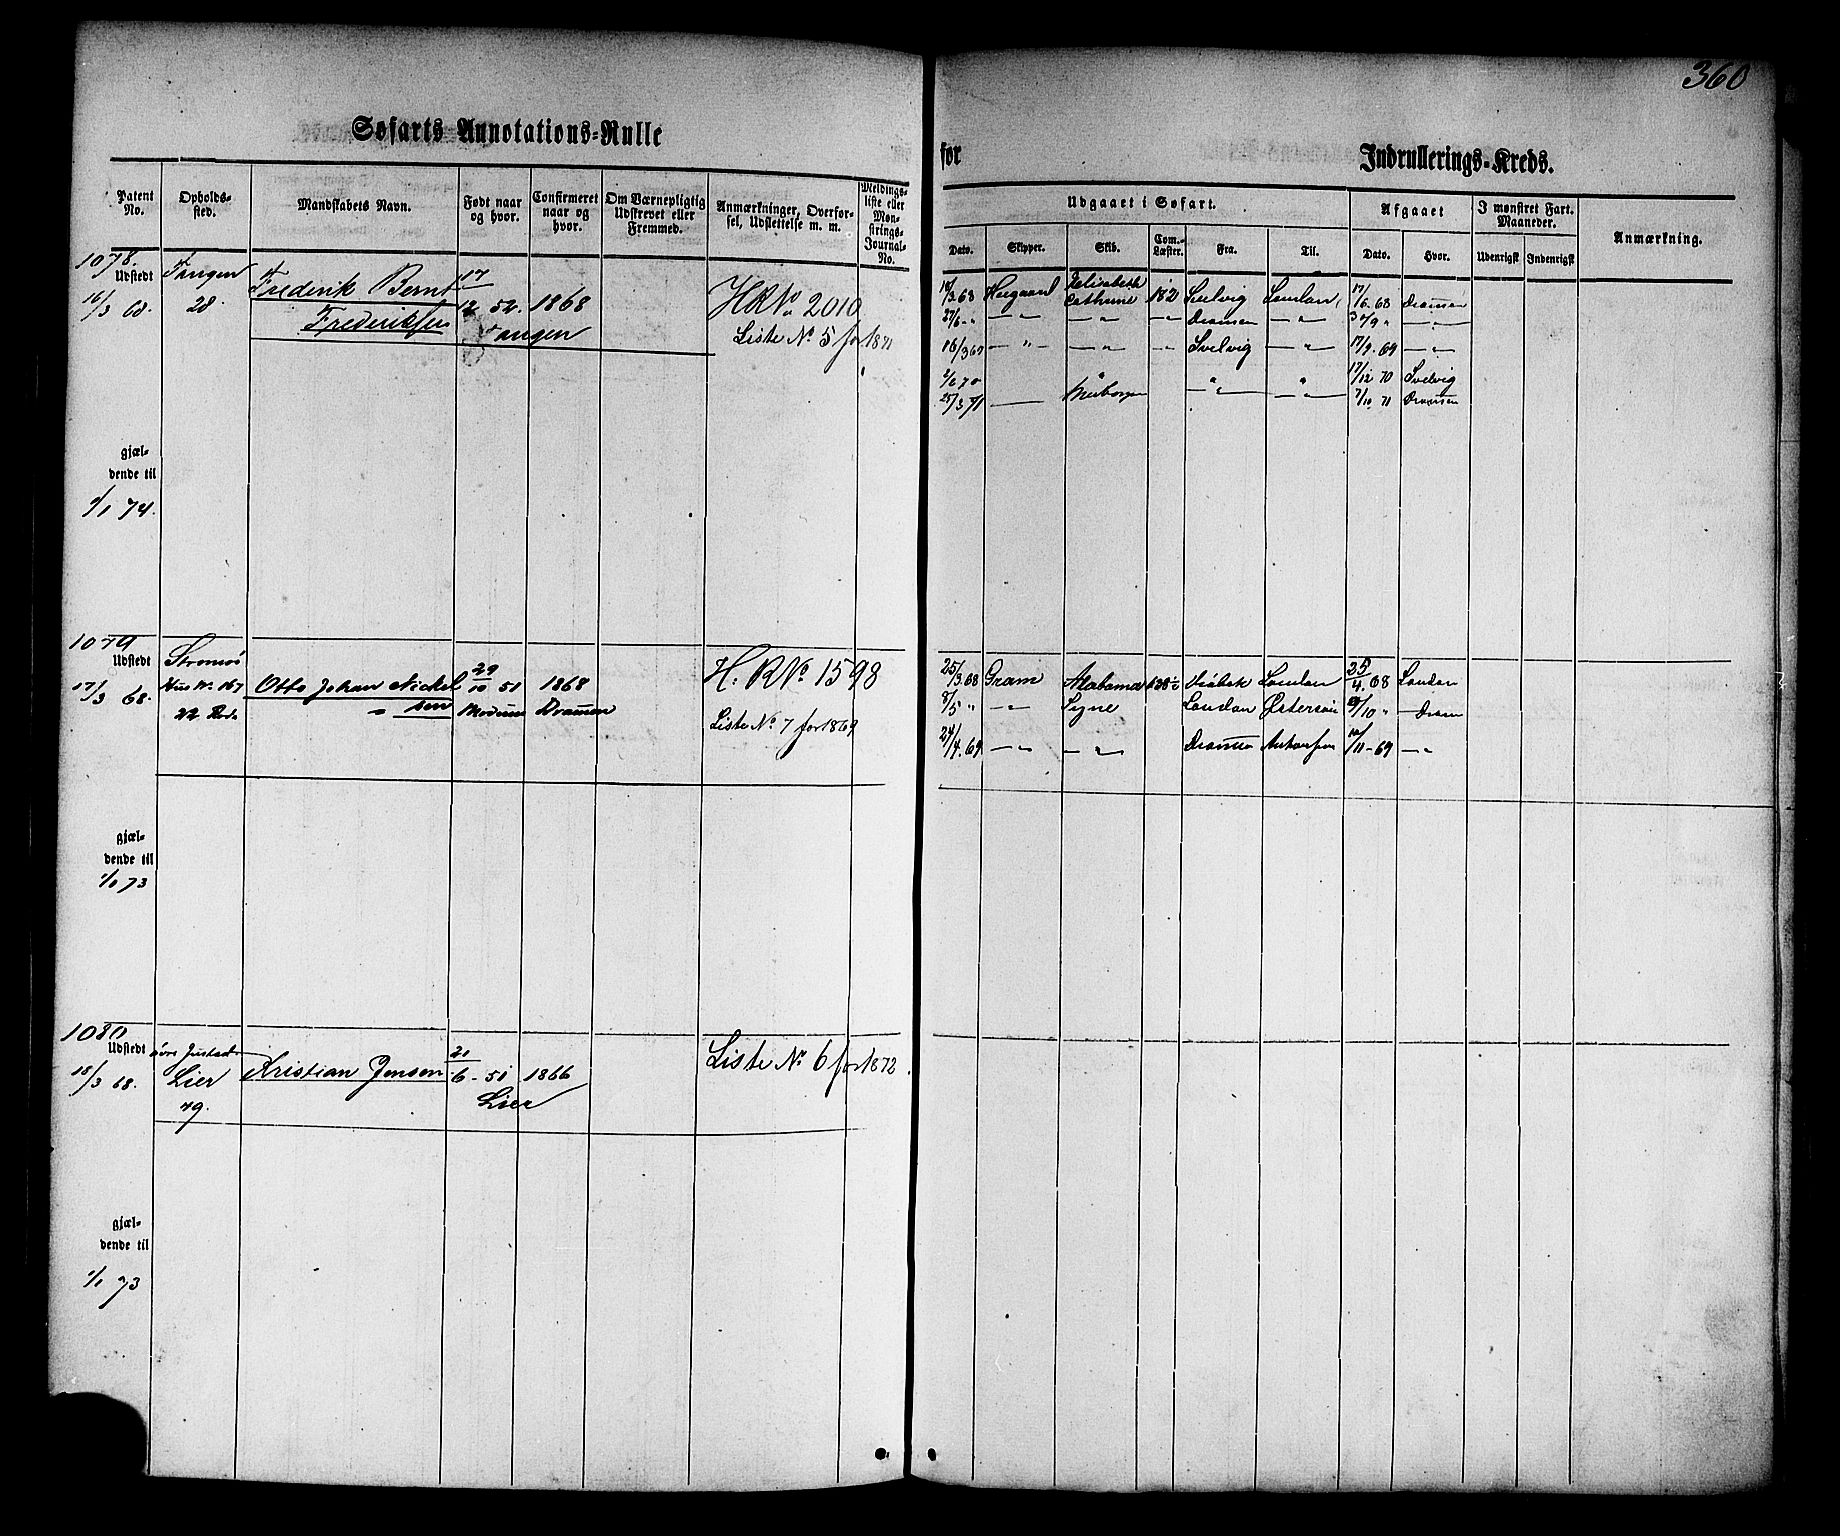 360
Søfarts Annotations-Rulle
for
Indrullerings-Kreds.
Patent No.
Opholdssted.
Mandskabets Navn.
Født naar og hvor.
Confirmeret naar og hvor.
Om Værnepligtig Udskrevet eller Fremmed.
Anmærkninger, Overførsel, Udslettelse m. m.
Meldingsliste eller Mønstrings-Journal-No.
Udgaaet i Søfart.
Afgaaet
I mønstret Fart. Maaneder.
Anmærkning.
Dato.
Skipper.
Skib.
Com.-Læster.
Fra.
Til.
Dato.
Hvor.
Udenrigsk
Indenrigsk
1078.
Udstedt
16/3 68.
Tangen
28.
Frederik Bernt
Frederiksen
17
12 52.
Tangen
1868
HR No 2010
Liste No 5 for 1871
Elisabeth
Cathrine 182 Svelvig
17/6. 68 Dramen
27/6 " Dramen
16/3 69 Svelvig
17/9. 69
2/6 70
17/12 70 Svelvig
25/3 71
7/10. 71 Dramen
gjæl-
dende til
1/1 74.
1079
Udstedt
17/3 68.
Strømsø
Hus No. 167
22 Rode
Otto Johan Nickel
sen
29
10 51
Modum
1868
Dramen
H. R No 1598
Liste No 7 for 1869
25/3 68 Gram Alabama London 25/4. 68 London
8/5 " Signe London Østersøen
24/4. 69 11-69
gjæl-
dende til
1/1 73
1080
Udstedt
18/3 68.
Lier
79.
Kristian Jensen
21
6 - 51
Lier
1866
Liste No 6 for 1872.
gjæl-
dende til
1/1 73